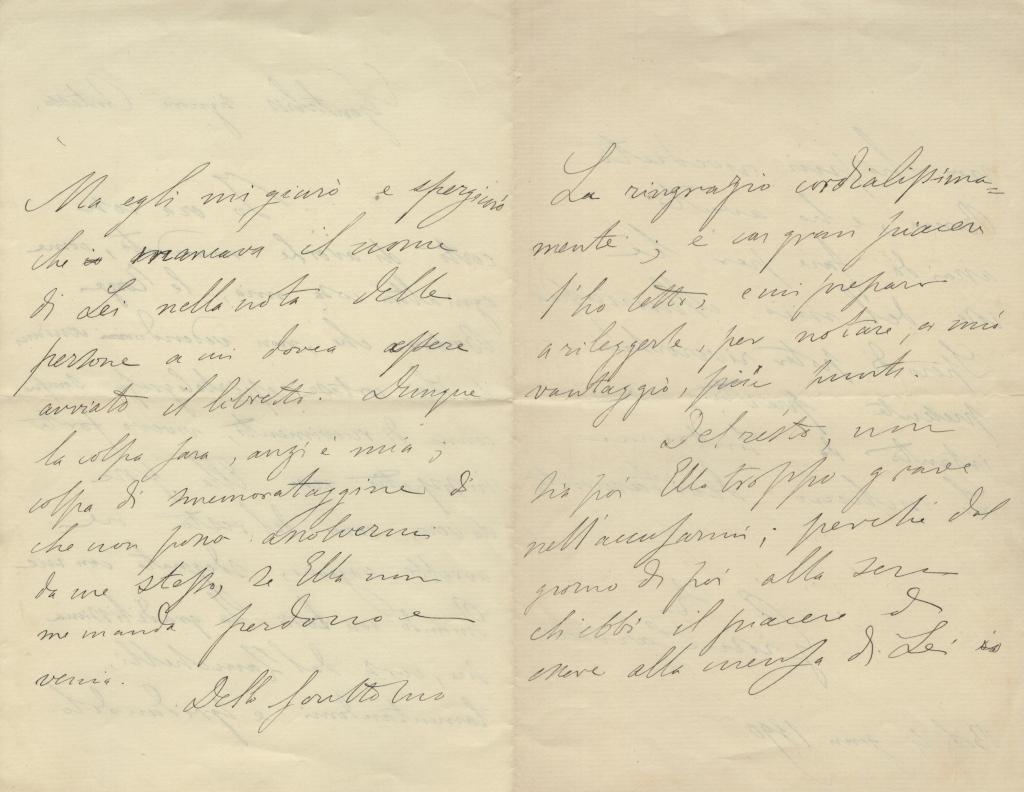 Ma egli mi giurò e spergiurò
che mancava il nome
di Lei nella nota delle
persone a cui dovea essere
avviato il libretto. Dunque
la colpa sarà, anzi è mia;
colpa di smemorataggine di
che non posso assolvermi
da me stesso, se Ella non
me manda perdono e
venia.
Dello
La ringrazio cordialissima=
mente; e con gran piacere
l'ho letto, e mi preparo
a rileggerlo, per notare, a mio
vantaggio, più punti.
Del resto, non
sia poi Ella troppo grave
nell'accusarmi; perchè dal
giorno di poi alla sera
ch'ebbi il piacere di
essere alla mensa di Lei io